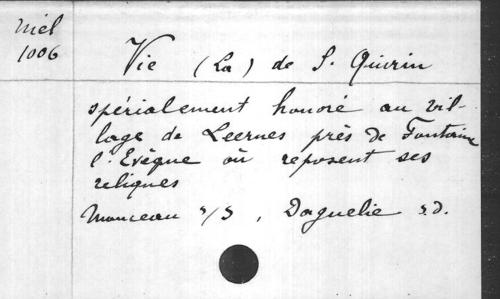 Niel
1006
Vie (La) de S. Quirin
spécialement honoré au vil-
lage de Leernes près de Fontaine
l'Evêque où reposent ses
reliques
Monceau s/S, Daguelie s.d.